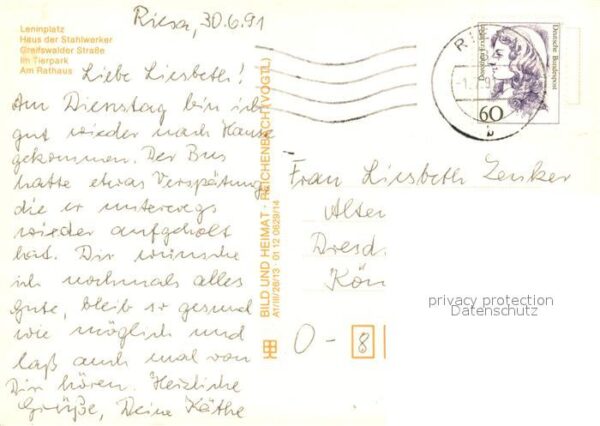 Riesa, 30.6.91
Leninplatz
Haus der Stahlwerker
Greifswalder Straße
Im Tierpark
Am Rathaus
Liebe Liesbeth!
Am Dienstag bin ich
gut wieder nach Hause
gekommen. Der Bus
hatte etwas Verspätung
die er unterwegs
wieder aufgeholt
hat. Dir wünsche
ich nochmals alles
Gute, bleib so gesund
wie möglich und
laß auch mal von
Dir hören. Herzliche
Grüße, Deine Käthe
BILD UND HEIMAT · REICHENBACH (VOGTL)
A1/III/26/13 · 01 12 0629/14
Deutsche Bundespost
60
Frau Liesbeth Zenker
Alten
Dresd.
Kön
O - 8
privacy protection
Datenschutz